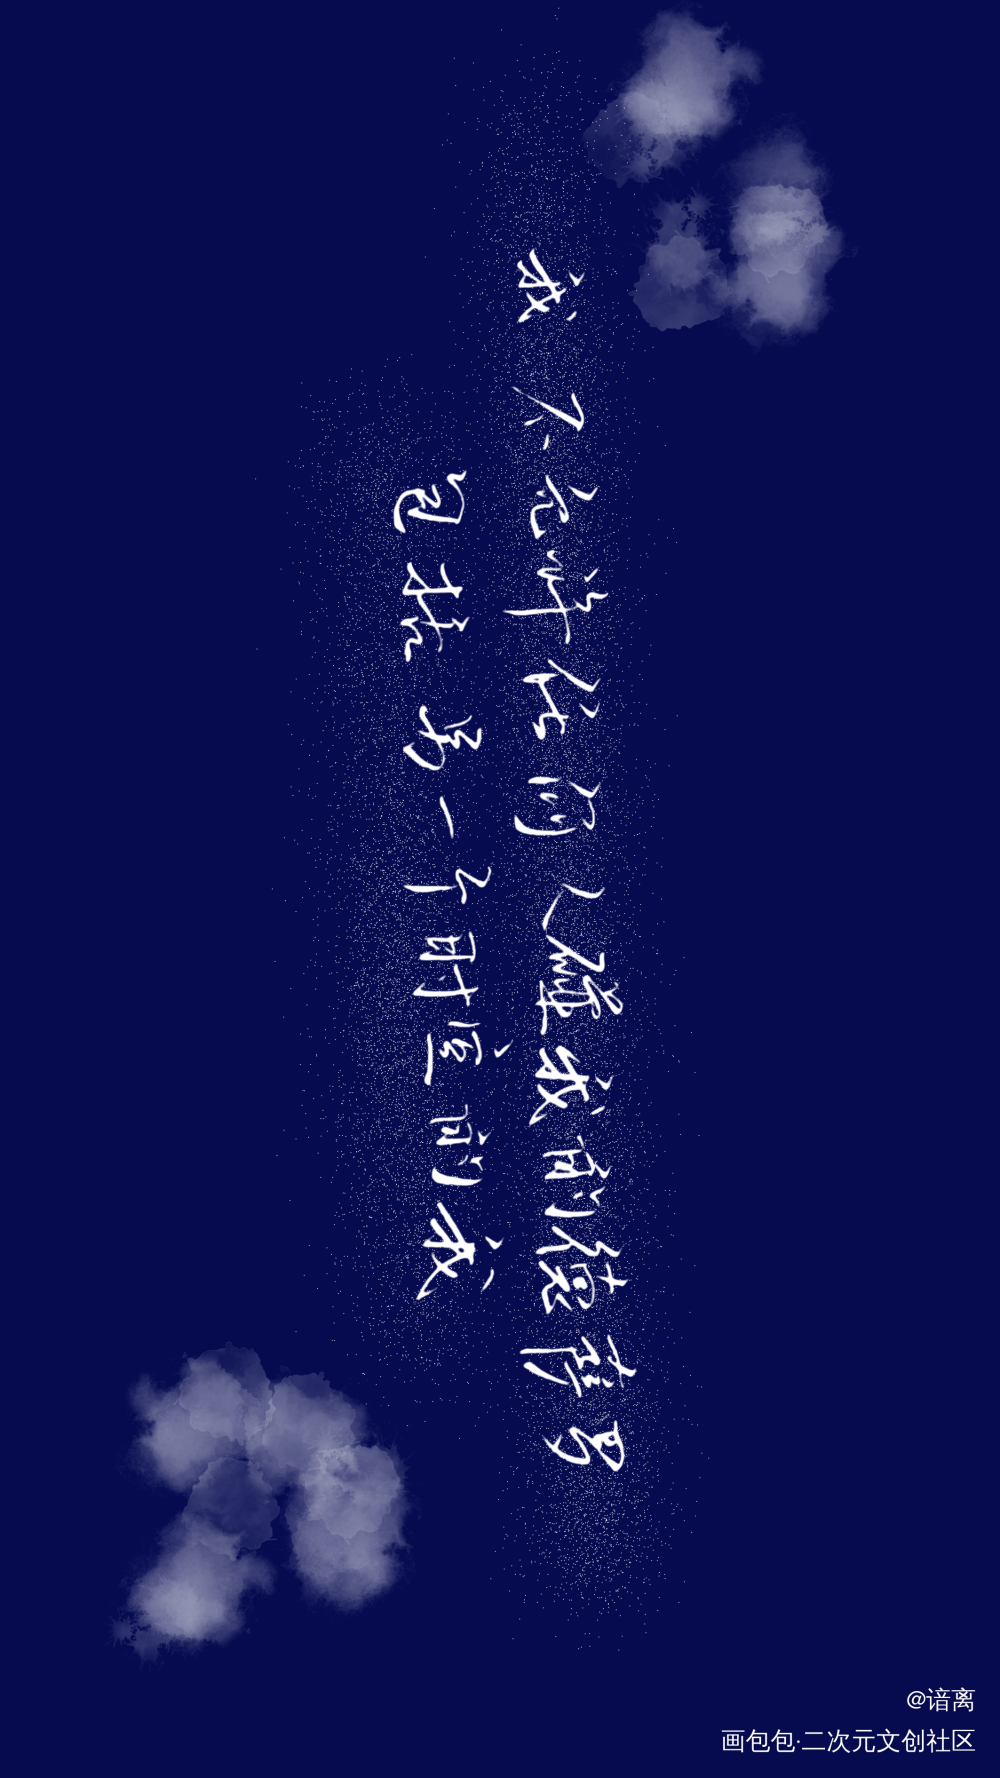 我不允许任何人碰我的德萨罗
包括另一个时空的我
@谙离
画包包·二次元文创社区